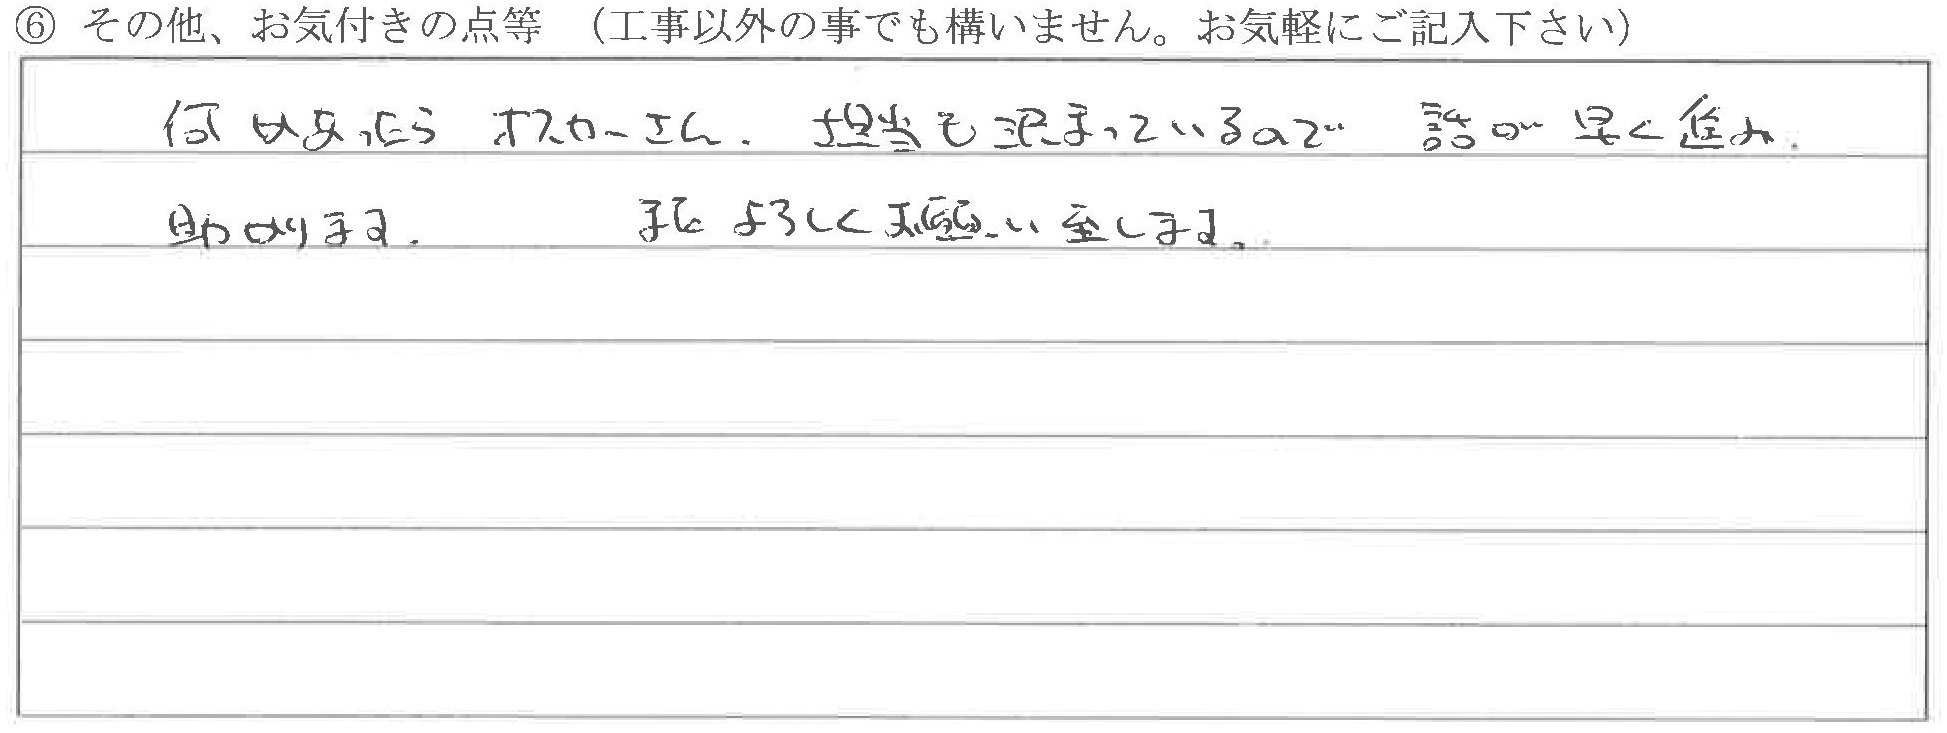 ⑥ その他、お気付きの点等 （工事以外の事でも構いません。お気軽にご記入下さい）
何かあったら オスカーさん. 担当も決まっているので 話が早く進み.
助かります. またよろしくお願い致します。